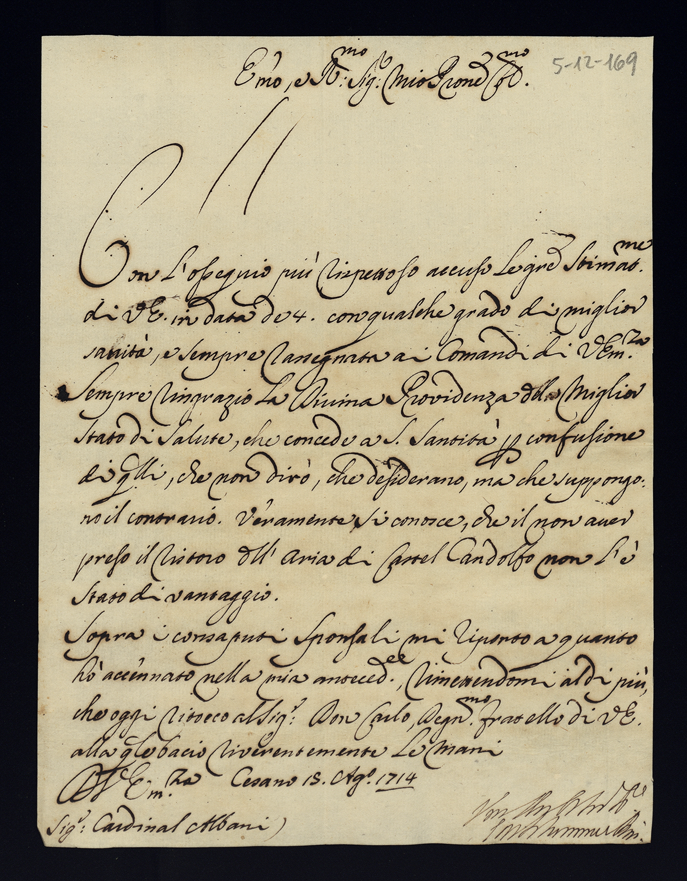 5-12-169
E.mo, e R.mo Sig.r Mio P.rone Col.mo
Con l'ossequio più rispettoso accuso le gre stimat.me
di V.E. in data de 4. con qualche grado di miglior
sanità, e sempre rassegnata ai Comandi di V.Em.za
Sempre ringrazio la Divina Providenza del Miglior
stato di salute, che concede a S. Santità p confusione
di qlli, che non dirò, che desiderano, ma che suppongo:
no il contrario. Veramente si conosce, che il non aver
preso il ristoro dll' aria di Castel Gandolfo non l'è
stato di vantaggio.
Sopra i consaputi sponsali mi riporto a quanto
hò accennato nella mia anteced.ee, rimettendomi al di più,
che oggi ritocco al Sig.r Don Carlo, Degn.mo fratello di V.E.
alla qle bacio riverentemente le mani
Di V. Em.za Cesano 18. Ag.o 1714
Sig.r Cardinal Albani)